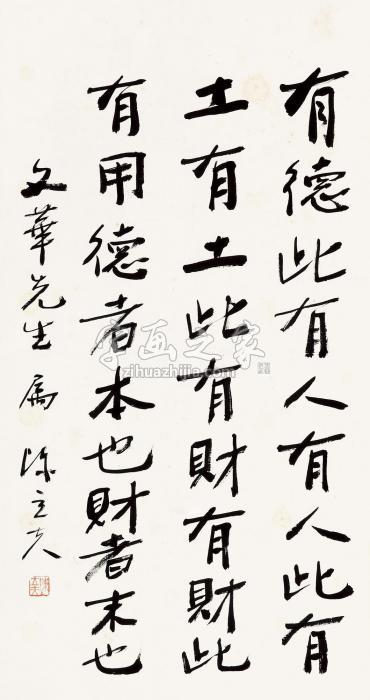 有德此有人有人此有
土有土此有財有財此
有用德者本也財者末也
文華先生属 陳立夫
字画之家
zihuazhijia.com